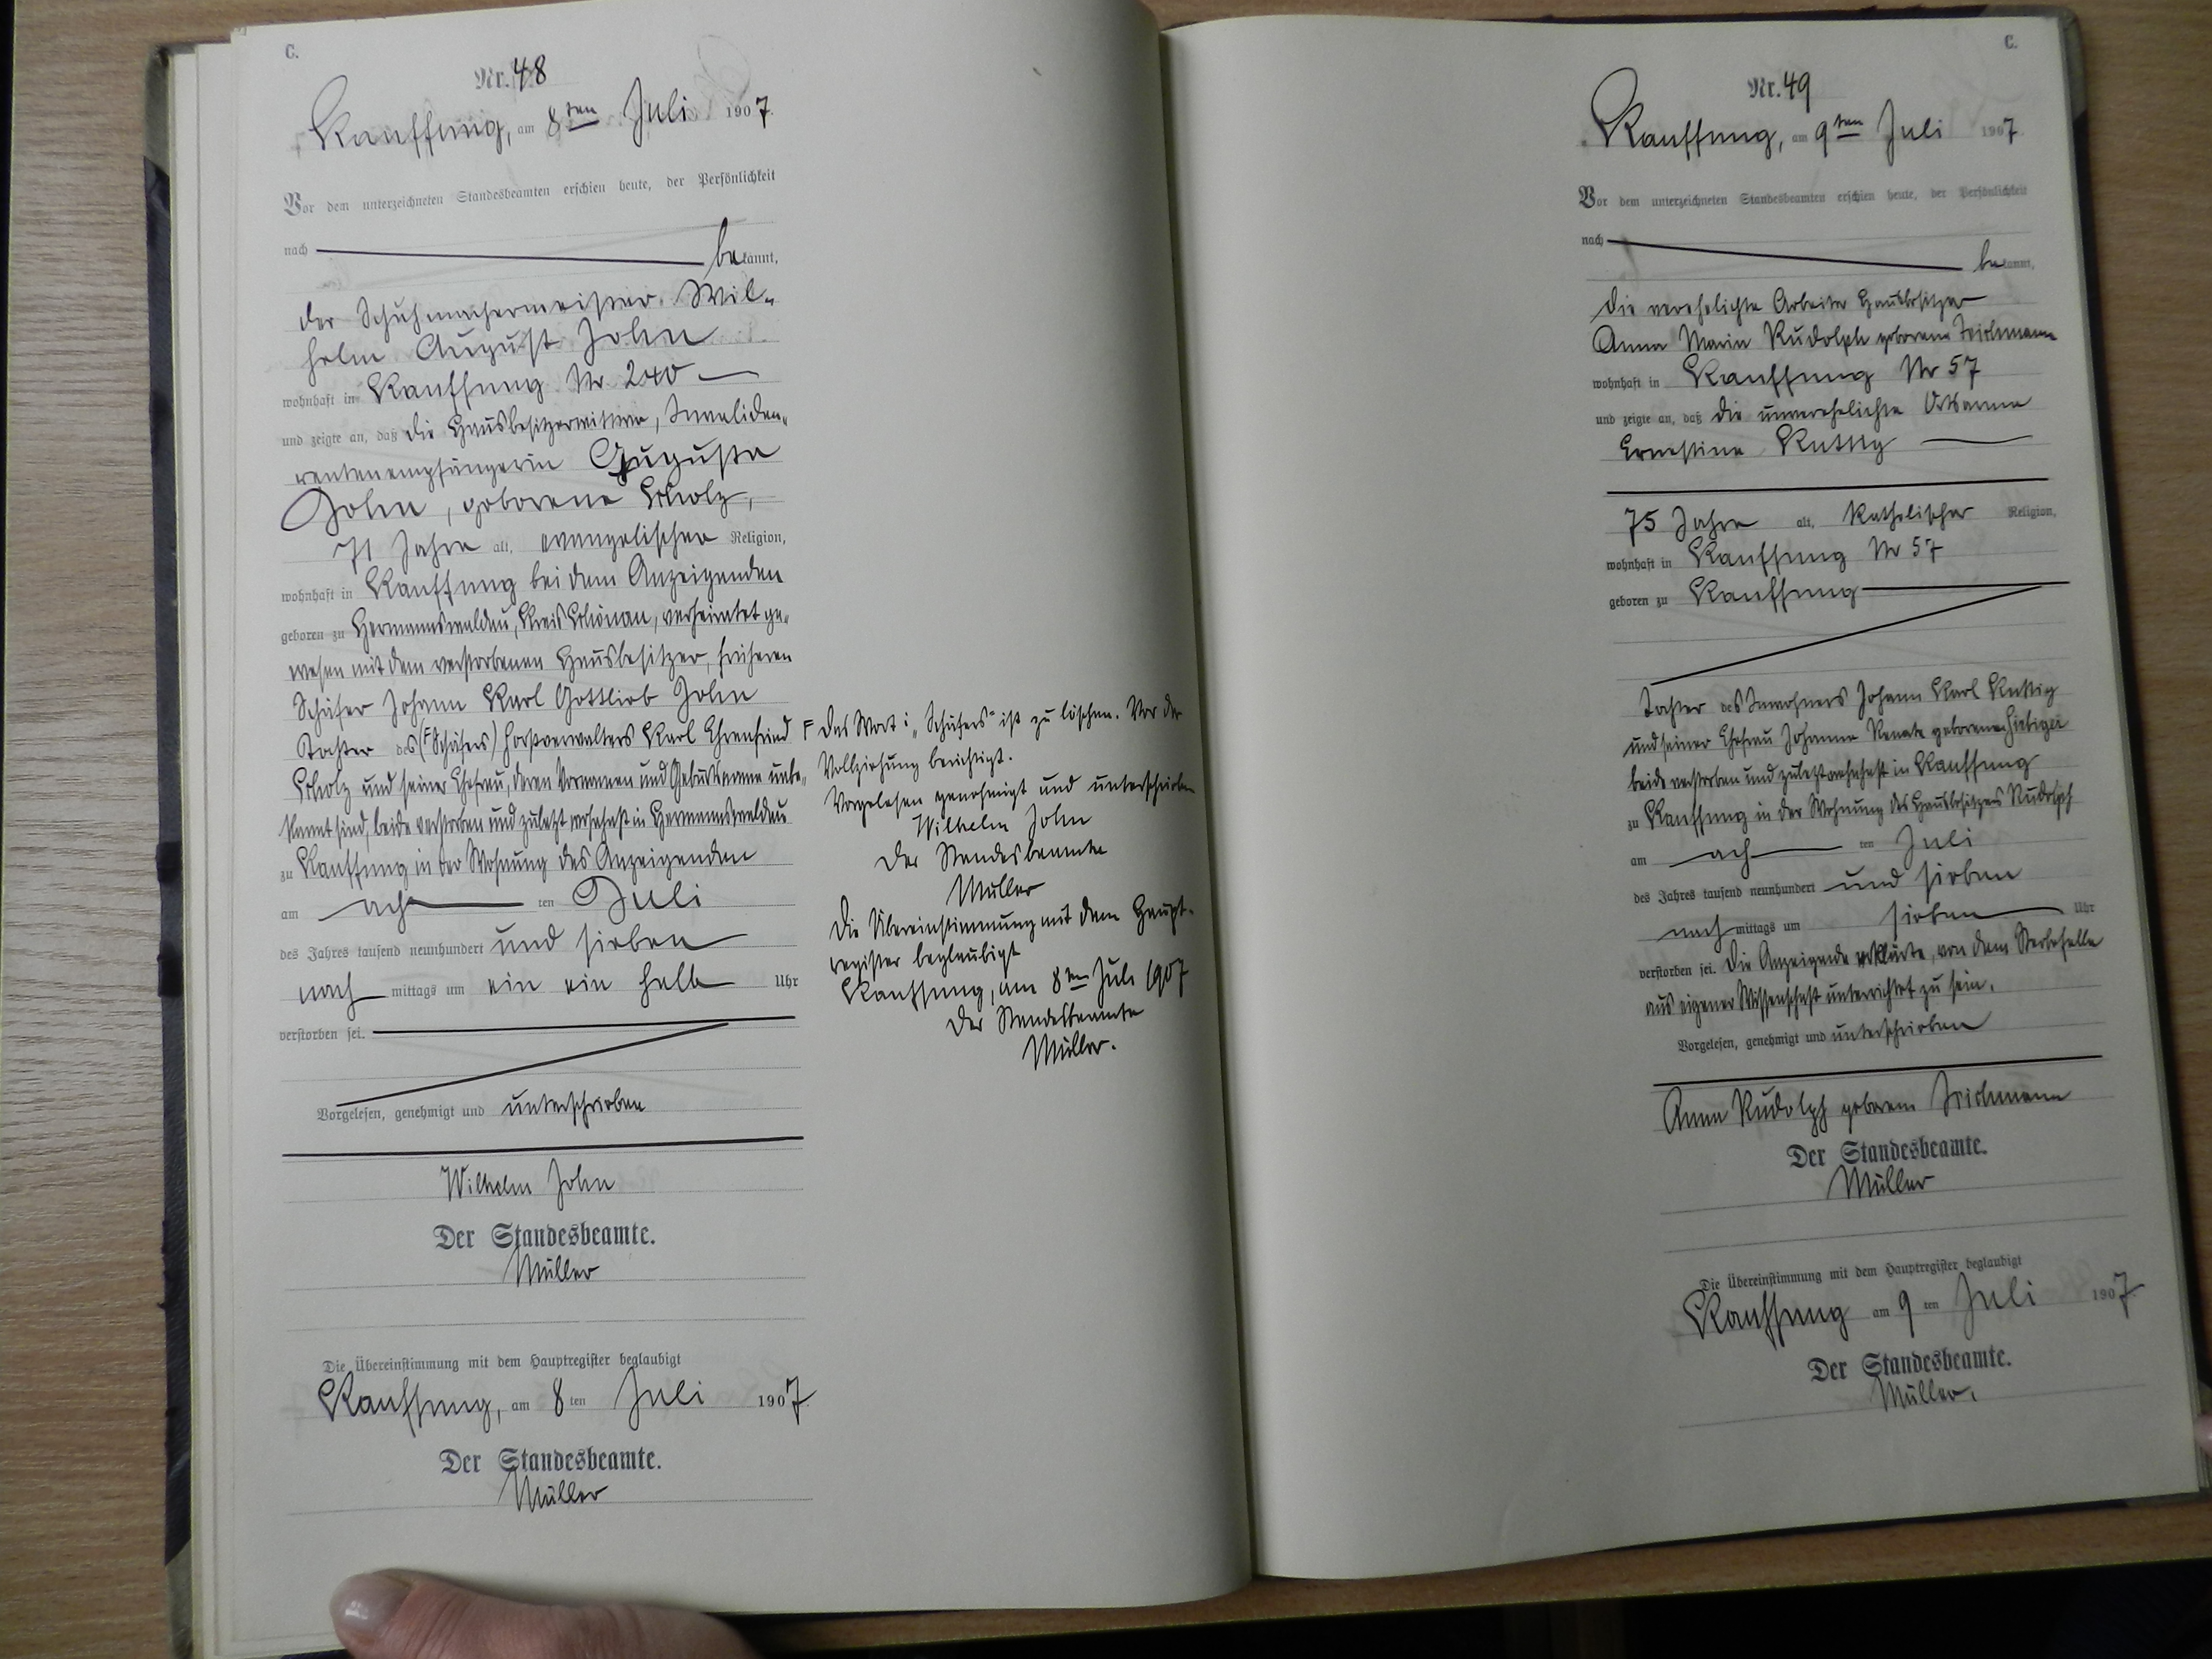 C.
Nr. 48
Kauffung, am 8ten Juli 1907.
Vor dem unterzeichneten Standesbeamten erschien heute, der Persönlichkeit
nach bekannt,
der Schuhmachermeister Wil-
helm August John
wohnhaft in Kauffung Nr. 240
und zeigte an, daß die Hausbesitzerwittwe, Invaliden-
rentenempfängerin Augusta
John, geborene Scholz,
71 Jahre alt, evangelischer Religion,
wohnhaft in Kauffung bei dem Anzeigenden
geboren zu Hermannswaldau, Kreis Schönau, verheiratet ge-
wesen mit dem verstorbenen Hausbesitzer, früheren
Schäfer Johann Karl Gottlieb John
Tochter des (F Schäfers) Forstverwalters Karl Ehrenfried
Scholz und seiner Ehefrau, deren Vornamen und Geburtsname unbe-
kannt sind, beide verstorben und zuletzt wohnhaft in Hermannswaldau
zu Kauffung in der Wohnung des Anzeigenden
am acht ten Juli
des Jahres tausend neunhundert und sieben
nach mittags um ein ein halb Uhr
verstorben sei.
Vorgelesen, genehmigt und unterschrieben
Wilhelm John
Der Standesbeamte.
Müller
Die Übereinstimmung mit dem Hauptregister beglaubigt
Kauffung, am 8 ten Juli 1907.
Der Standesbeamte.
Müller
F Das Wort: „Schäfers" ist zu löschen. Vor der
Vollziehung berichtigt.
Vorgelesen genehmigt und unterschrieben
Wilhelm John
Der Standesbeamte
Müller
Die Übereinstimmung mit dem Haupt-
register beglaubigt
Kauffung, am 8ten Juli 1907
Der Standesbeamte
Müller.
C.
Nr. 49
Kauffung, am 9ten Juli 1907.
Vor dem unterzeichneten Standesbeamten erschien heute, der Persönlichkeit
nach bekannt,
die verehelichte Arbeiter Hausbesitzer
Anna Maria Rudolph geborene Teichmann
wohnhaft in Kauffung Nr 57
und zeigte an, daß die unverehelichte Ortsarme
Ernestine Kuttig
75 Jahre alt, katholischer Religion,
wohnhaft in Kauffung Nr 57
geboren zu Kauffung
Tochter des Inwohners Johann Karl Kuttig
und seiner Ehefrau Johanne Renate geborene
beide verstorben und zuletzt wohnhaft in Kauffung
zu Kauffung in der Wohnung des Hausbesitzers Rudolph
am acht ten Juli
des Jahres tausend neunhundert und sieben
nach mittags um sieben Uhr
verstorben sei. Die Anzeigende erklärte, von dem Sterbefalle
aus eigener Wissenschaft unterrichtet zu sein.
Vorgelesen, genehmigt und unterschrieben
Anna Rudolph geborene Teichmann
Der Standesbeamte.
Müller
Die Übereinstimmung mit dem Hauptregister beglaubigt
Kauffung am 9 ten Juli 1907.
Der Standesbeamte.
Müller.